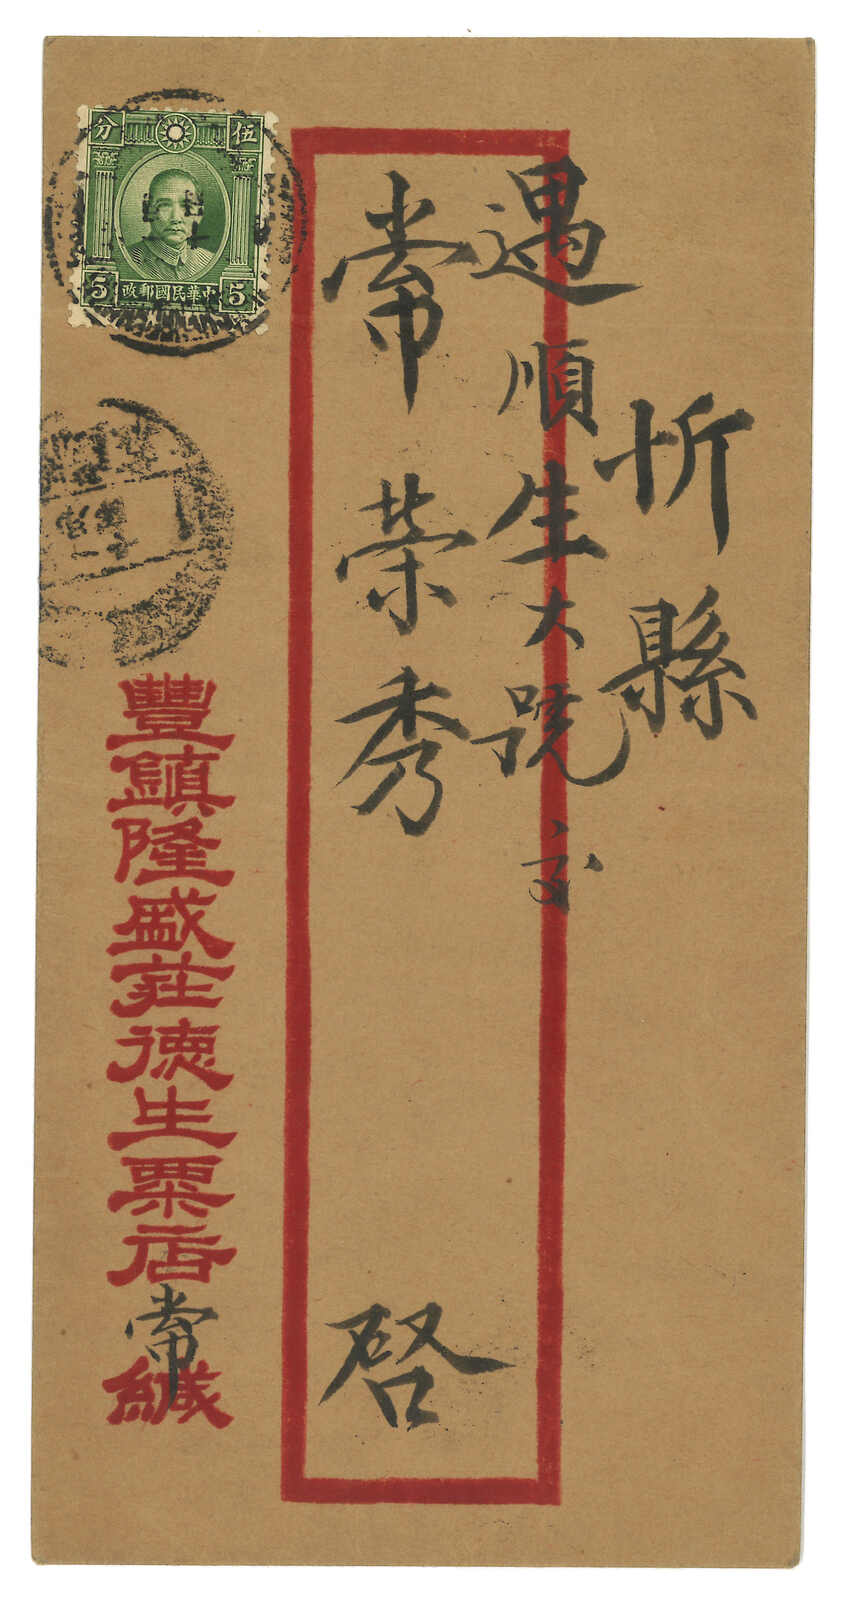 忻縣
遇順生大號交
常荣秀
啓
伍 分
5 中華民國郵政 5
豐鎮隆盛莊德生粟店常緘